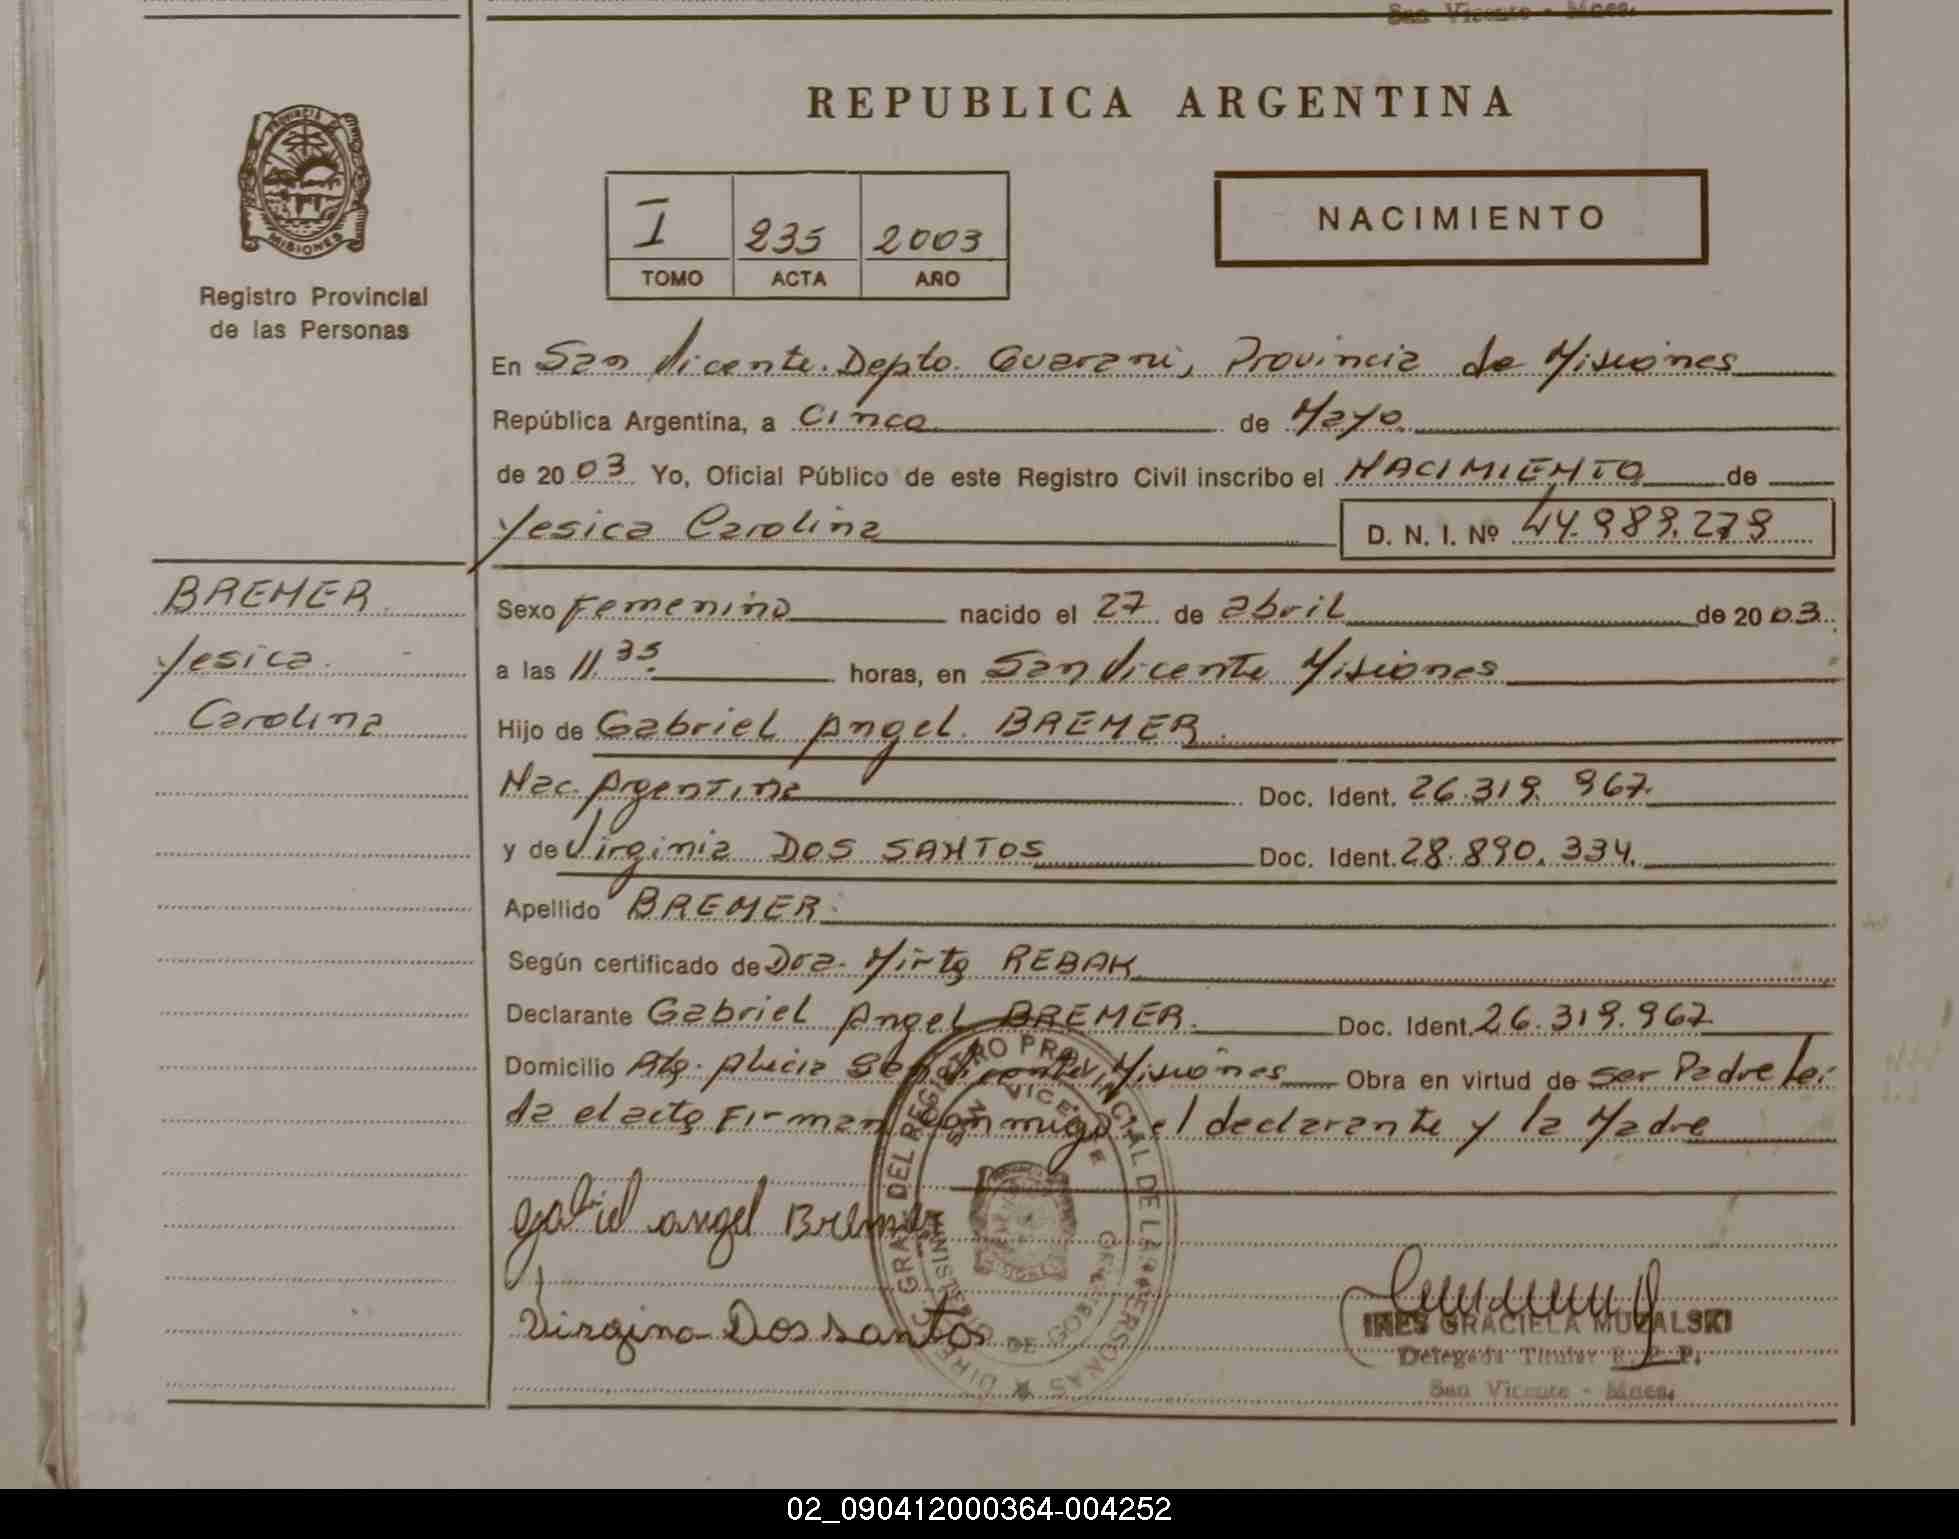 San Vicente - Mnes.
PROVINCIA DE
MISIONES
Registro Provincial
de las Personas
REPUBLICA ARGENTINA
I 235 2003
TOMO ACTA AÑO
NACIMIENTO
En San Vicente. Depto. Guarani, Provincia de Misiones
República Argentina, a Cinco de Mayo
de 2003 Yo, Oficial Público de este Registro Civil inscribo el NACIMIENTO de
Yesica Carolina D. N. I. Nº 44.989.279
BREMER
Yesica
Carolina
Sexo Femenino nacido el 27 de abril de 2003
a las 11.35 horas, en San Vicente Misiones
Hijo de Gabriel Angel BREMER
Nac. Argentina Doc. Ident. 26.319.967
y de Virginia DOS SANTOS Doc. Ident. 28.890.334
Apellido BREMER
Según certificado de Dra. Mirta REBAK
Declarante Gabriel Angel BREMER Doc. Ident. 26.319.967
Domicilio Alicia San Vicente, Misiones Obra en virtud de ser Padre lei-
da el acta Firman conmigo el declarante y la Madre
Gabriel angel Bremer
Virgina Dos santos
DIREC. GRAL. DEL REGISTRO PROVINCIAL DE LAS PERSONAS
SAN VICENTE
MINISTERIO DE GOBIERNO
INES GRACIELA MUZALSKI
Delegada Titular R. P. P.
San Vicente - Mnes.
02_090412000364-004252